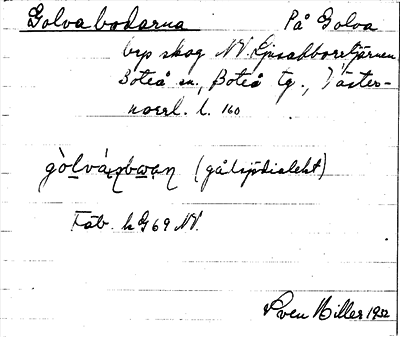 Golvabodarna På Golva
byp skog NV. Ljusabborrtjärnen
Boteå sn., Boteå tg., Väster-
norrl. l. 160
gòlvávbwan (gålsjödialekt)
Fäb. h G 69 NV.
Sven Hiller 1952